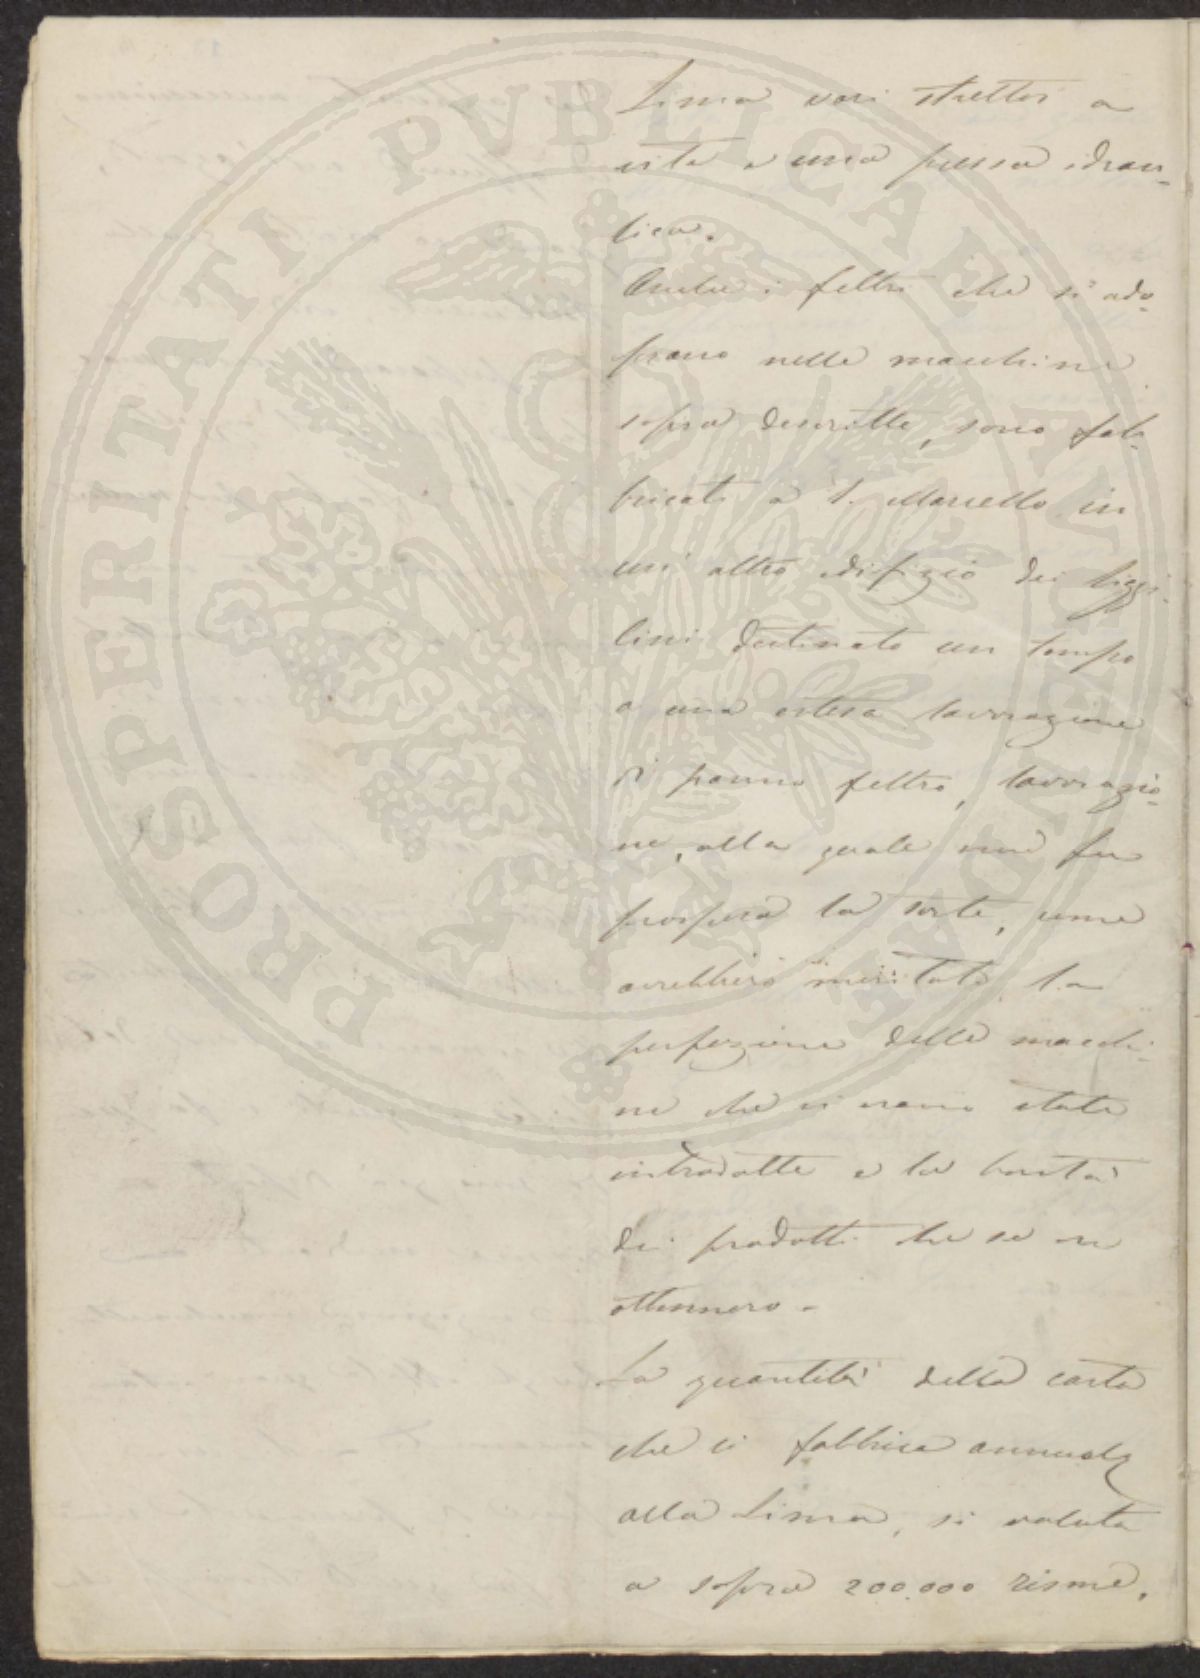 Lima vari strettoi a
vite e una pressa idrau-
lica.
Anche i feltri che si ado
prano nelle macchine
sopra descritte, sono fab-
bricati a S. Marcello in
un altro edifizio dei Cigi-
lini destinato un tempo
a una estesa lavorazione
di panno feltro, lavorazio-
ne, alla quale non fu
prospera la sorte, come
avrebbero meritato la
perfezione delle macchi-
ne che vi erano state
introdotte e la bontà
dei prodotti che se ne
ottennero.
La quantità della carta
che si fabbrica annual
alla Lima, si valuta
a sopra 200.000 risme.
PROSPERITATI PVBLICAE AVGENDAE